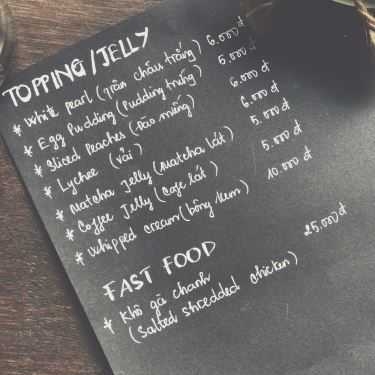 TOPPING/JELLY
* White pearl (trân châu trắng) 6.000 đ
* Egg Pudding (Pudding trứng) 5.000 đ
* Sliced Peaches (Đào miếng) 6.000 đ
* Lychee (vải) 6.000 đ
* Matcha Jelly (Matcha lát) 5.000 đ
* Coffee Jelly (Cafe lát) 5.000 đ
* Whipped cream (bông kem) 10.000 đ
FAST FOOD
* Khô gà chanh 25.000 đ
(Salted shredded chicken)